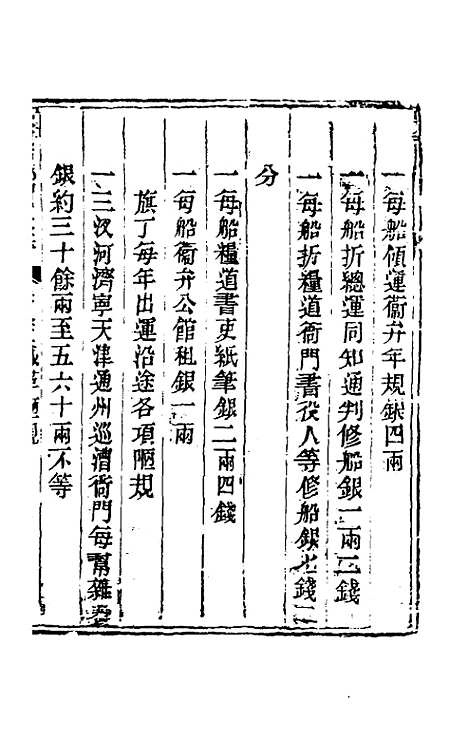 一每船領運衞弁年規銀四兩
一每船折總運同知通判修船銀一兩二錢
一每船折糧道衙門書役人等修船銀七錢二
分
一每船糧道書吏紙筆銀二兩四錢
一每船衞弁公館租銀一兩
旗丁每年出運沿途各項陋規
一三汊河濟寧天津通州巡漕衙門每幫雜費
銀約三十餘兩至五六十兩不等